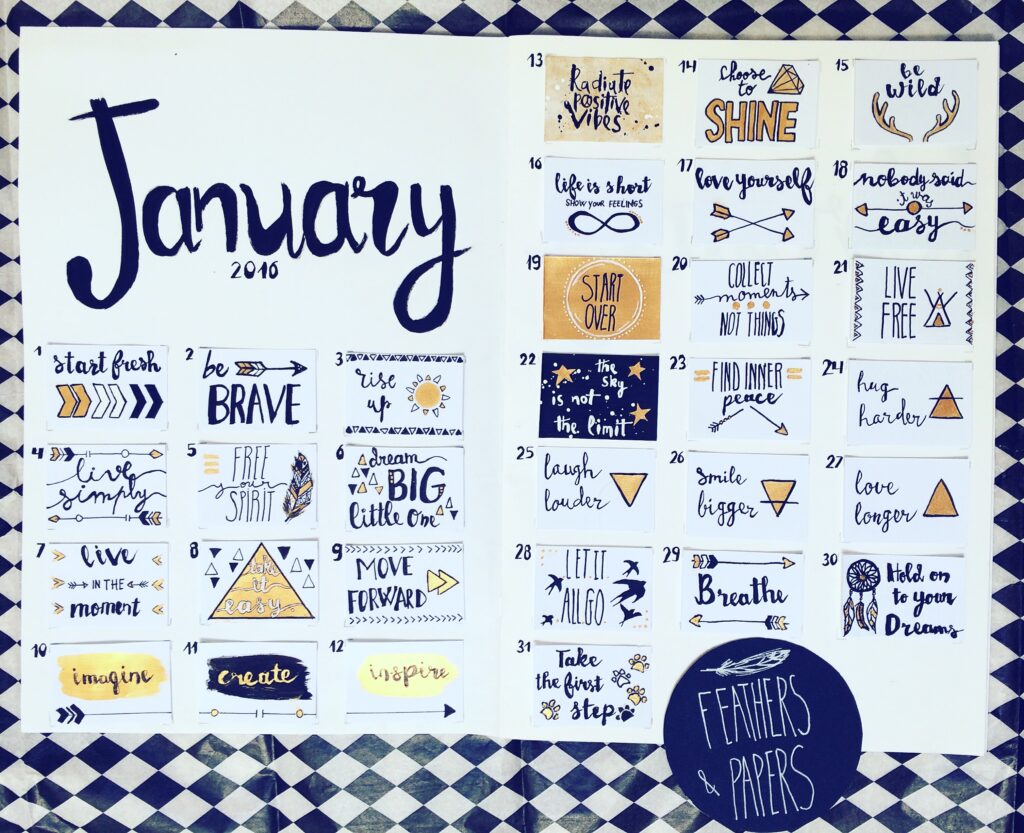 January
2016
1
start fresh
2
be
BRAVE
3
rise
up
4
live
simply
5
FREE
your
SPIRIT
6
dream
BIG
little one
7
live
IN THE
moment
8
take
it
easy
9
MOVE
FORWARD
10
imagine
11
create
12
inspire
13
Radiate
positive
vibes
14
choose
to
SHINE
15
be
wild
16
life is short
SHOW YOUR FEELINGS
17
love yourself
18
nobody said
it was
easy
19
START
OVER
20
COLLECT
moments
NOT THINGS
21
LIVE
FREE
22
the
sky
is not
the limit
23
FIND INNER
peace
24
hug
harder
25
laugh
louder
26
smile
bigger
27
love
longer
28
LET IT
ALL GO
29
Breathe
30
Hold on
to your
Dreams
31
Take
the first
step
FEATHERS
& PAPERS